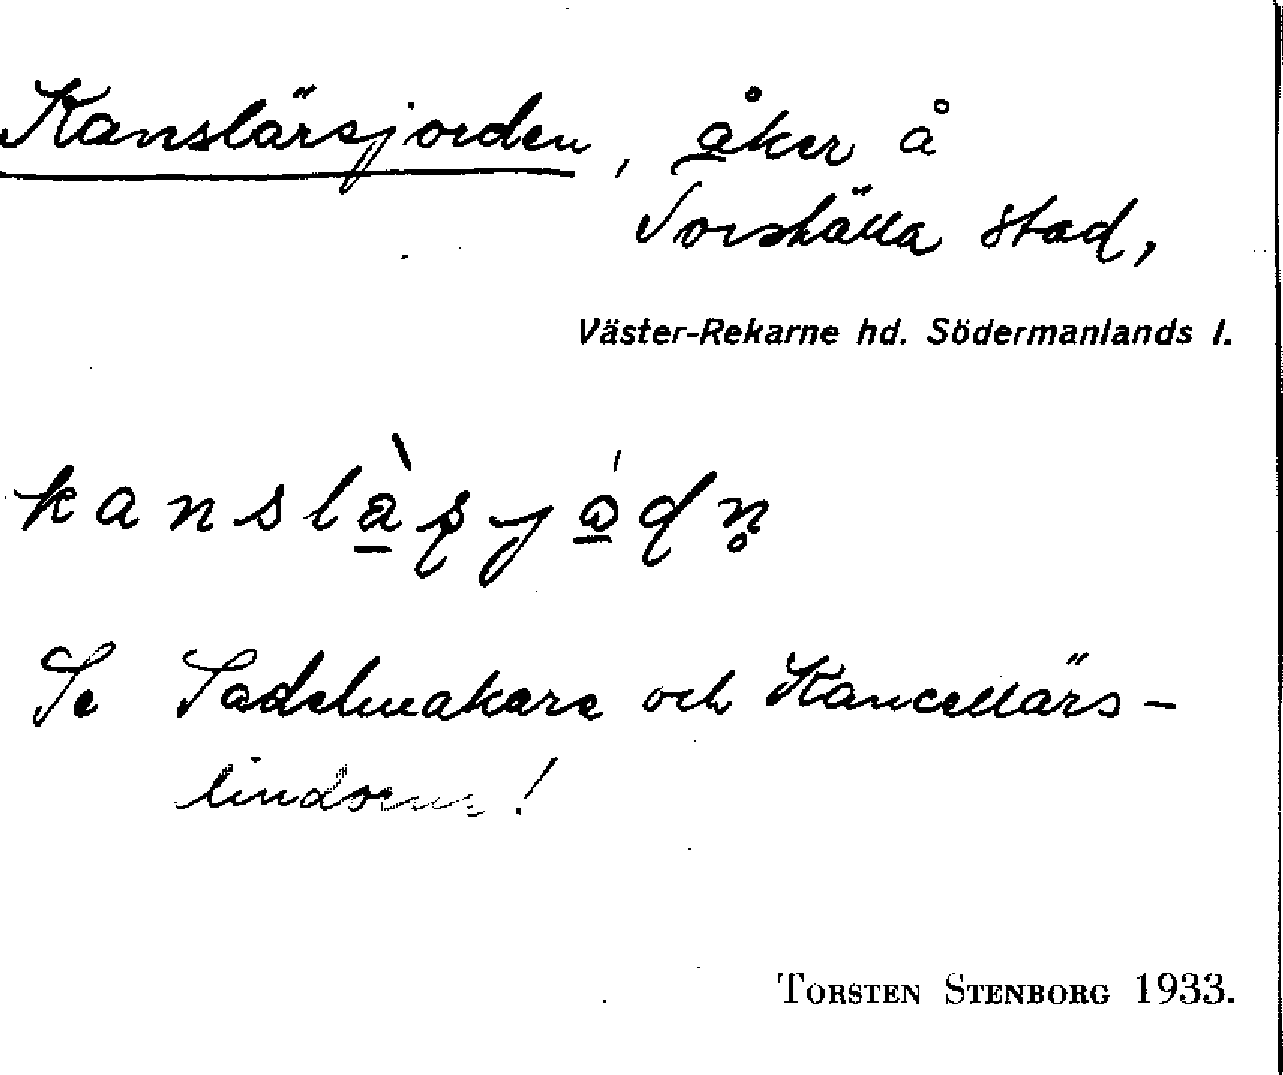 Kanslärsjorden, åker å
Torshälla stad,
Väster-Rekarne hd. Södermanlands l.
Se Sadelmakare och Kancellärs-
lindorna!
TORSTEN STENBORG 1933.